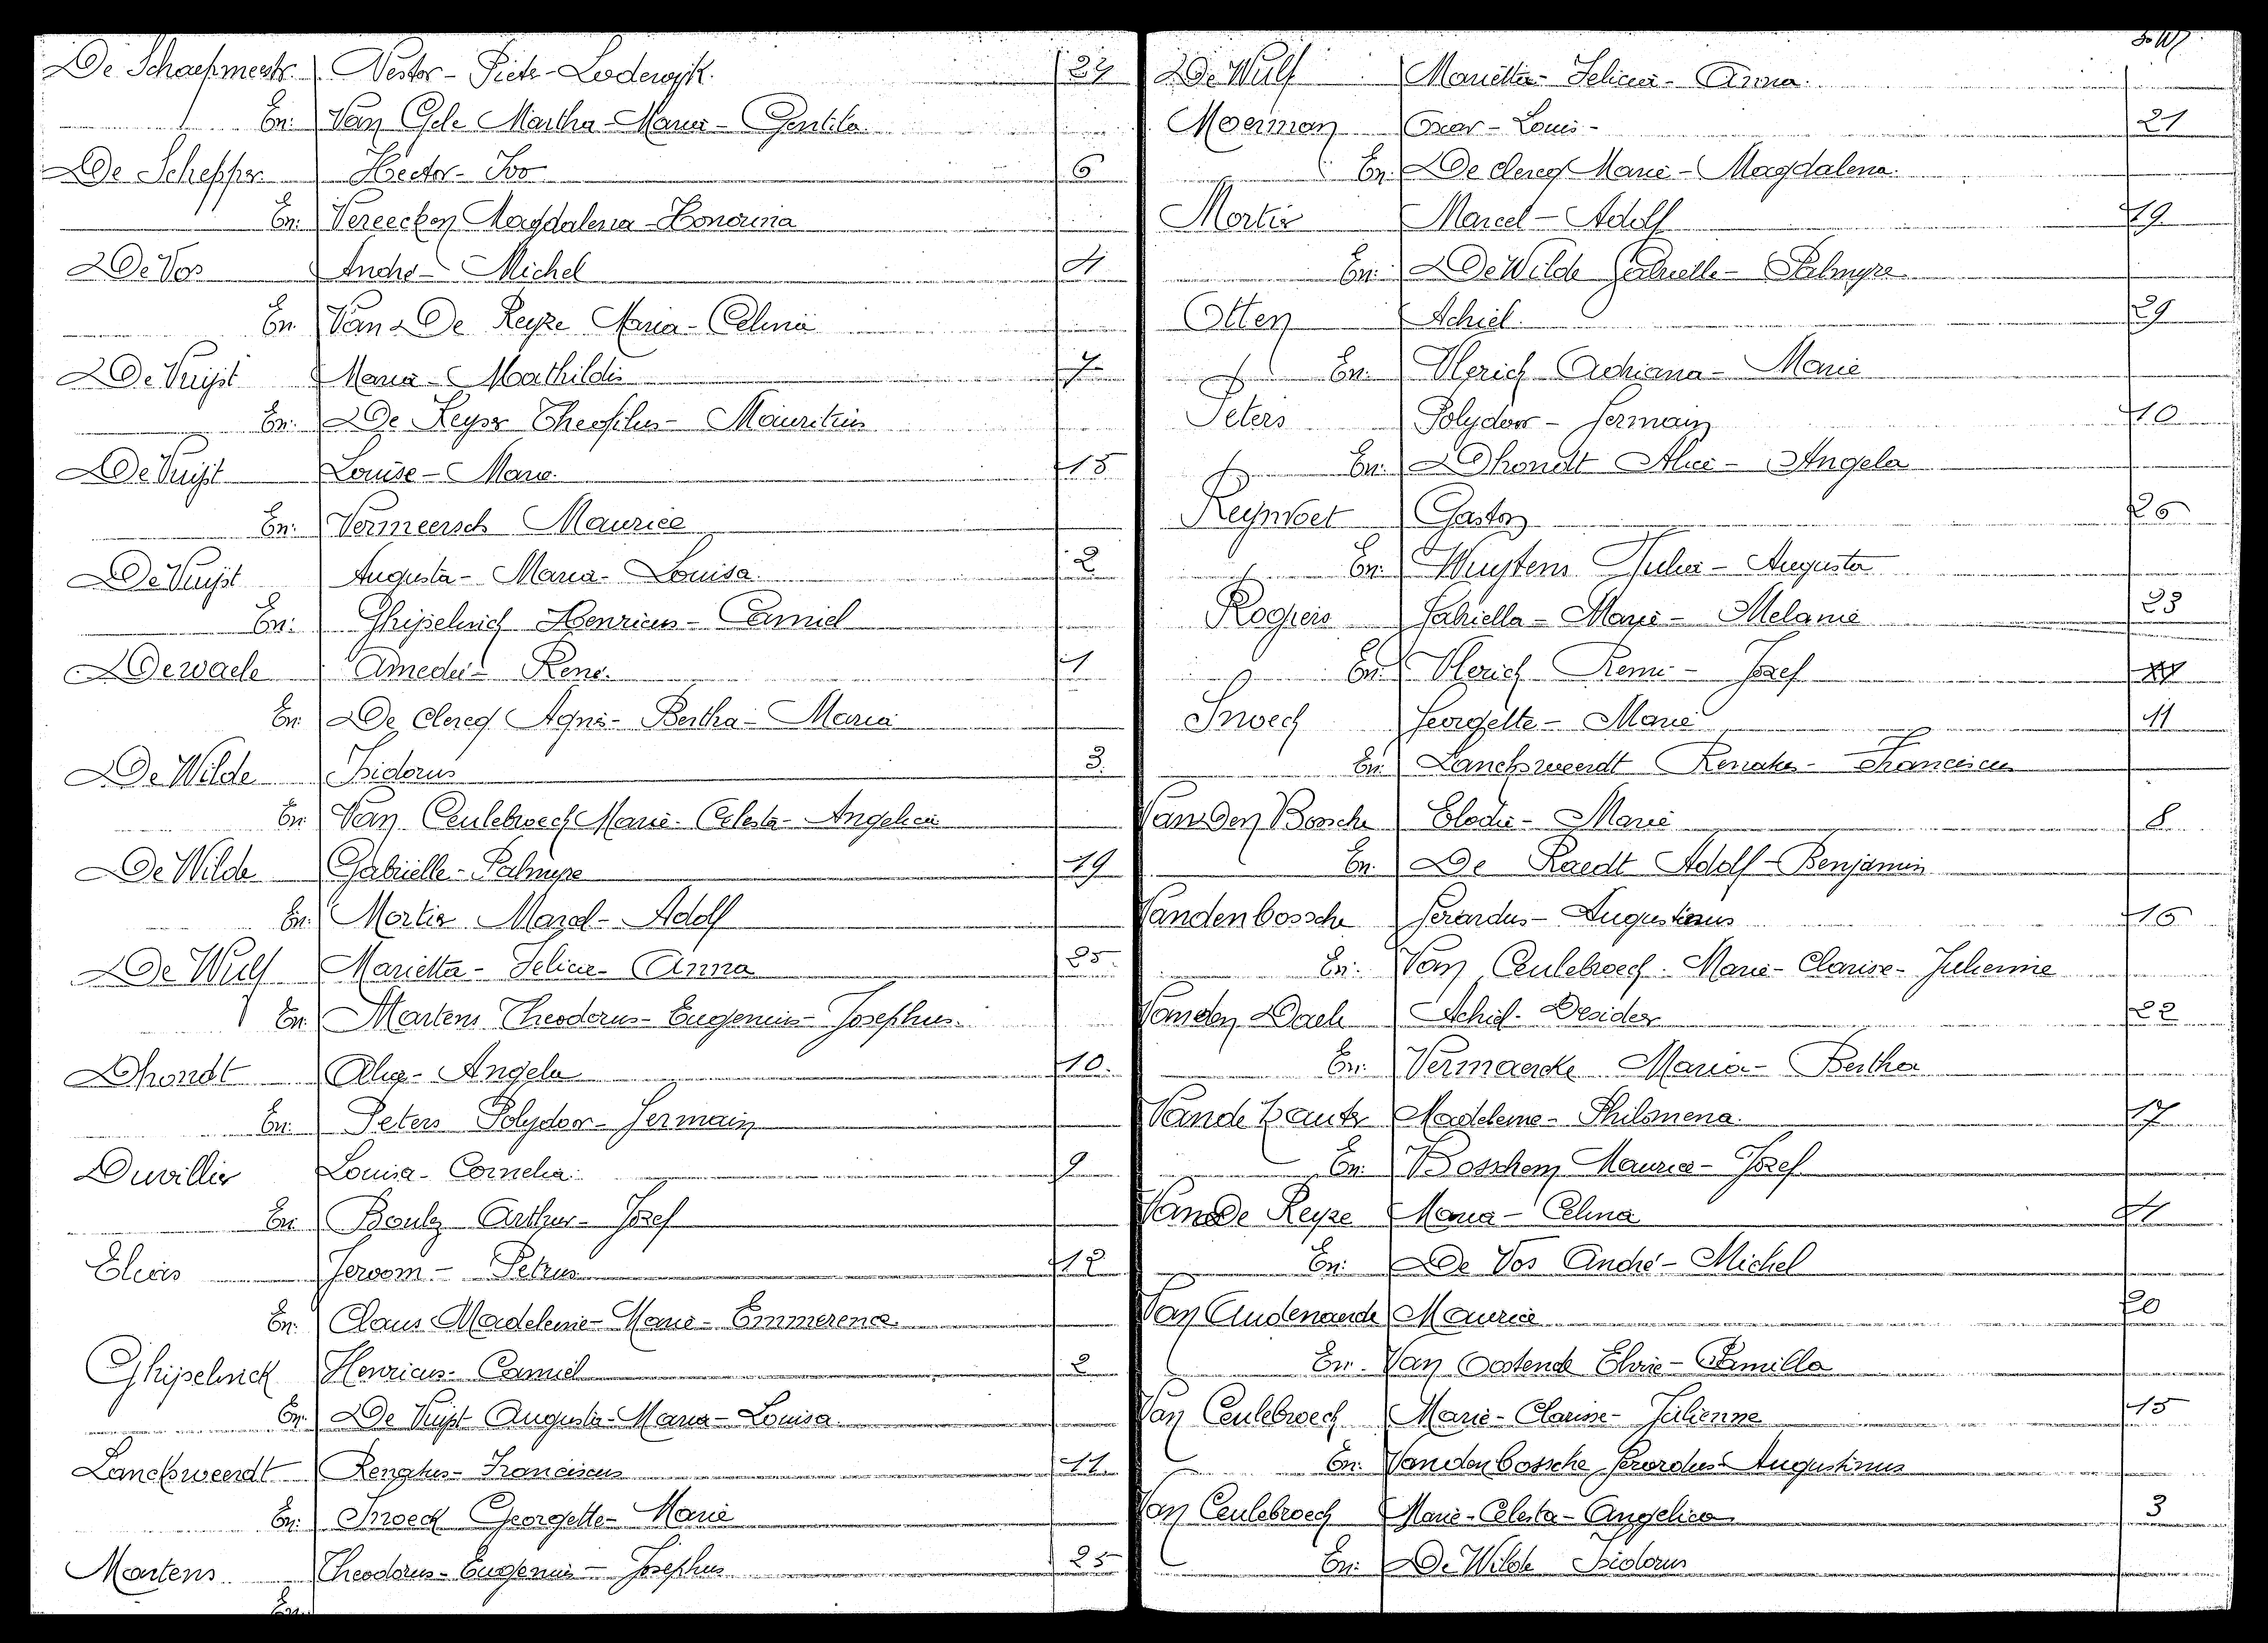 De Schaepmeester Nestor - Pieter - Lodewijk. 27
En: Van Gele Martha - Maria - Gentila
De Schepper Hector - Ivo 6
En: Vereecken Magdalena - Honorina
De Vos André - Michel 4
En. Van De Keyze Maria - Celina
De Vuijst Maria - Mathildis 7
En: De Keyser Theofilus - Mauritius
De Vuijst Louise - Marie. 15
En: Vermeersch Maurice
De Vuijst Augusta - Maria - Louisa. 2
En: Ghijselinck Henricus - Camiel
Dewaele Amedée - René. 1
En: De Clercq Agnes - Bertha - Maria
De Wilde Isidorus 3.
En: Van Ceulebroeck Marie - Celesta - Angelica
De Wilde Gabrielle - Palmyre 19
En: Mortier Marcel - Adolf
De Wulf Marietta - Felicia - Anna 25.
En: Martens Theodorus - Eugenius - Josephus.
Dhondt Alice - Angela 10.
En: Peters Polydoor - Germain
Duvillier Louisa - Cornelia. 9
En: Arthur - Jozef
Elias Jeroom - Petrus 12
En: Claus Madeleine - Marie - Emmerence
Ghijselinck Henricus - Camiel 2
En: De Vuijst Augusta - Maria - Louisa.
Lancksweerdt Renatus - Franciscus 11.
En: Snoeck Georgette - Marie
Martens Theodorus - Eugenius - Josephus 25
En:
De Wulf Marietta - Felicia - Anna.
Moerman Oscar - Louis - 21
En. De Clercq Marie - Magdalena.
Mortier Marcel - Adolf 19.
En: De Wilde Gabrielle - Palmyre
Otten Achiel. 29
En: Vlerick Adriana - Marie
Peters Polydoor - Germain 10
En: Dhondt Alice - Angela
Gaston 26
En: Wuytens Julia - Augusta
Rogiers Gabriella - Marie - Melanie 23
En: Vlerick Remi - Jozef
Snoeck Georgette - Marie 11
En: Lancksweerdt Renatus - Franciscus
Van Den Bossche Elodie - Marie 8
En. De Raedt Adolf - Benjamin
Vandenbossche Gerardus - Augustinus 16
En: Van Ceulebroeck. Marie - Clarise - Julienne
Van den Daele Achiel - Desider 22
En: Vermaercke Maria - Bertha
Madeleine - Philomena. 17
En: Bosschem Maurice - Jozef
Van De Keyze Maria - Celina 4
En: De Vos André - Michel
Van Audenaerde Maurice 20
En. Van Oostende Elvire - Camilla
Van Ceulebroeck Marie - Clarisse - Julienne 15
En: Vandenbossche Gerardus - Augustinus
Van Ceulebroeck Marie - Celesta - Angelica 3
En: De Wilde Isidorus